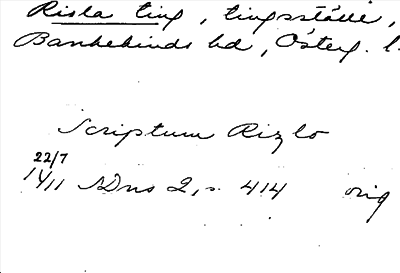 Risla ting, tingsställe,
Bankekinds hd, Österg. l
Scriptum Rizlo
22/7
1411 SDns 2, s. 414 orig